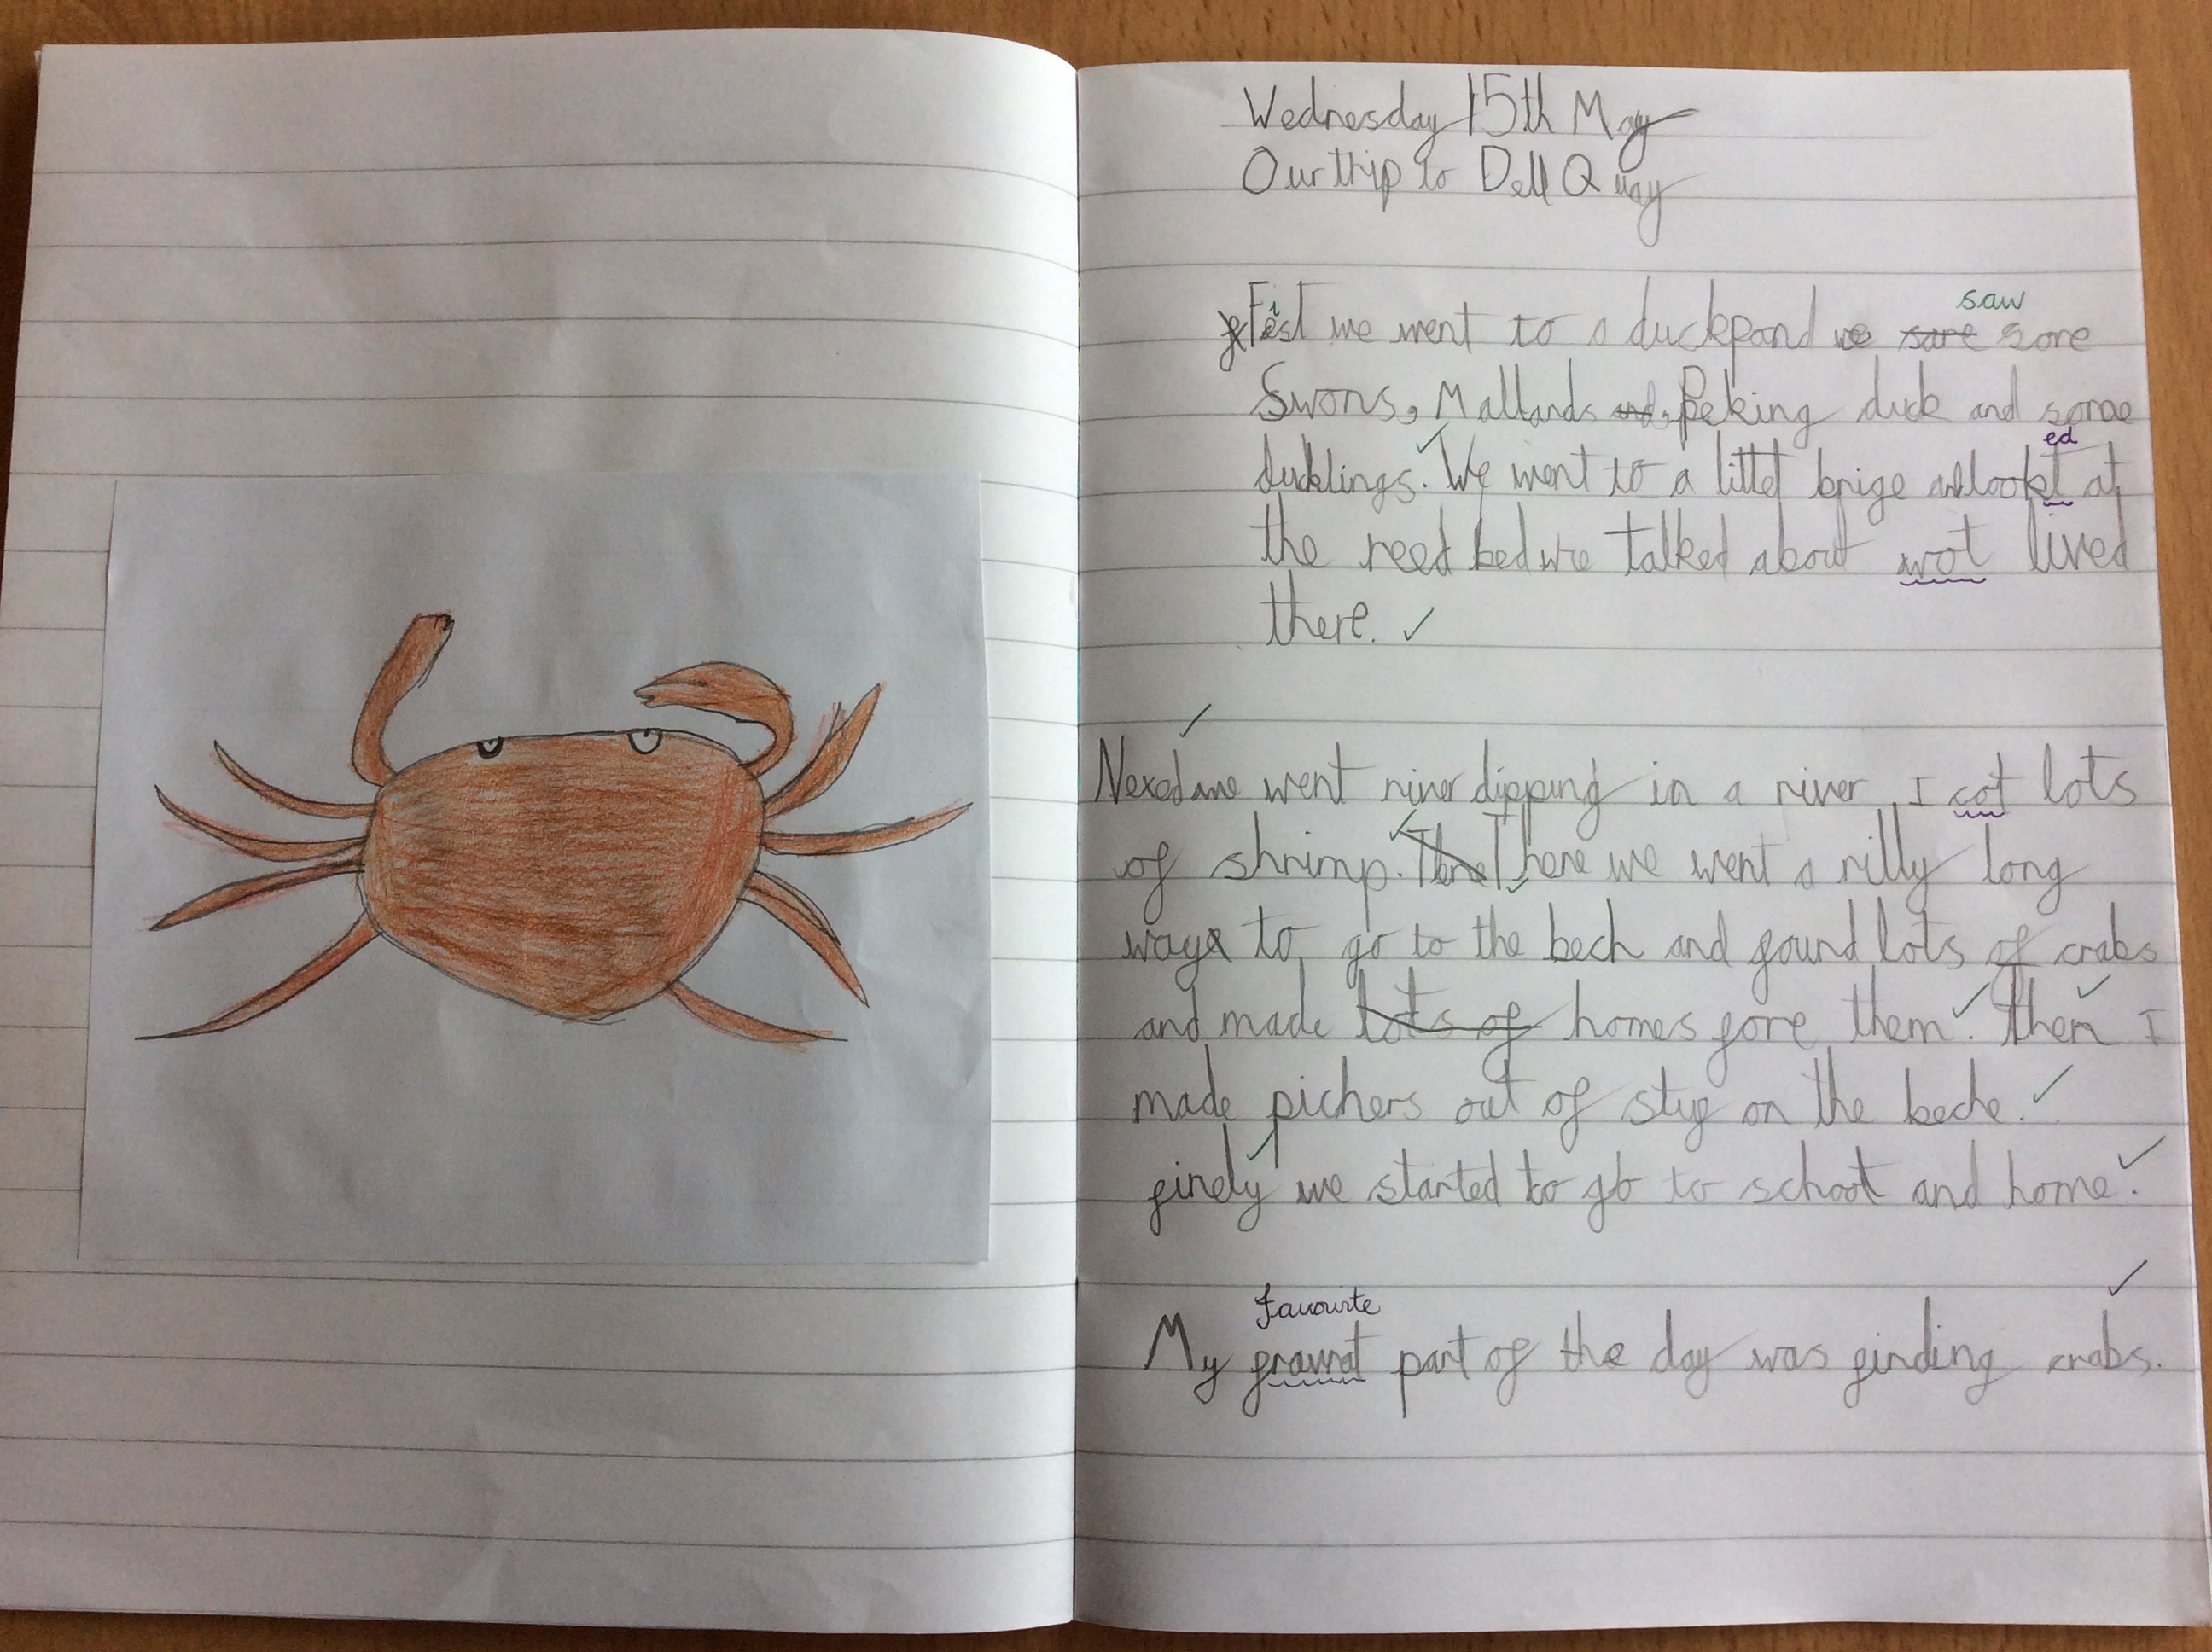 Wednesday 15th May
Our thip to Dell Quay
saw
Fist we went to a duckpond we sare sore
Swons, Mallards and, Peking duck and some
ed
ducklings. We went to a littel brige and lookt at
the reed bed we talked about wot lived
there.
Nexed we went river dipping in a river I cot lots
of shrimp. There There we went a rilly long
way to go to the bech and found lots of crabs
and made lots of homes fore them. then I
made pichers out of stuf on the beche.
finely we started to go to school and home.
favourite
My part of the day was finding crabs.